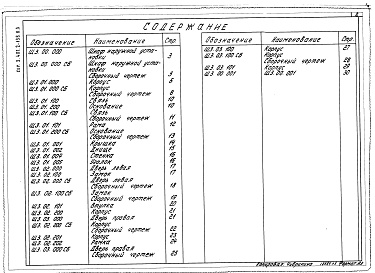 СОДЕРЖАНИЕ
Обозначение Наименование Стр.
ШЗ. 00. 000 Шкаф наружной уста-
новки 3
ШЗ. 00. 000 СБ Шкаф наружной уста-
новки
Сборочный чертеж 3
ШЗ. 01. 000 Корпус 6
ШЗ. 01. 000 СБ Корпус
Сборочный чертеж 8
ШЗ. 01. 100 Связь 10
ШЗ. 01. 200 Основание 10
ШЗ. 01. 100 СБ Связь
Сборочный чертеж 11
ШЗ. 01. 101 Рама 12
ШЗ. 01. 200 СБ Основание
Сборочный чертеж 13
ШЗ. 01. 001 Крышка 14
ШЗ. 01. 002 Днище 15
ШЗ. 01. 004 Стенка 16
ШЗ. 01. 005 16
ШЗ. 02. 000 Дверь левая 17
ШЗ. 02. 100 Замок 17
ШЗ. 02. 000 СБ Дверь левая
Сборочный чертеж 18
ШЗ. 02. 100 СБ Замок
Сборочный чертеж 19
ШЗ. 02. 101 Втулка 20
ШЗ. 02. 200 Корпус 21
ШЗ. 03. 000 Дверь правая 21
ШЗ. 02. 200 СБ Корпус
Сборочный чертеж 22
ШЗ. 02. 201 Корпус 23
ШЗ. 02. 202 Рамка 24
ШЗ. 03. 000 СБ Дверь правая
Сборочный чертеж 25
Обозначение Наименование Стр.
ШЗ. 03. 100 Корпус 27
ШЗ. 03. 100 СБ Корпус
Сборочный чертеж 28
ШЗ. 03. 101 Корпус 29
ШЗ. 00. 001 ШЗ. 00. 001 30
Копировал